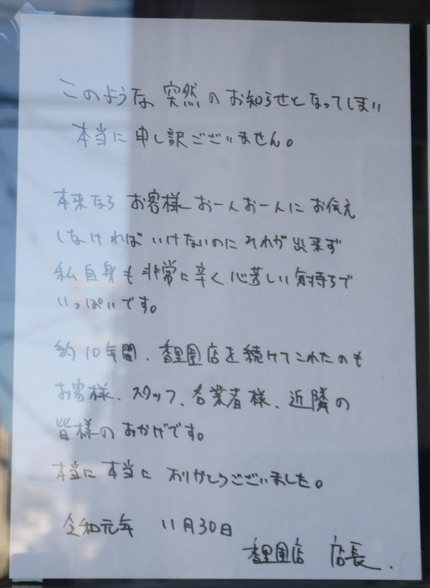 このような突然のお知らせとなってしまい
本当に申し訳ございません。
本来なら お客様お一人お一人にお伝え
しなければいけないのにそれが出来ず
私自身も非常に辛く心苦しい気持ちで
いっぱいです。
約10年間、香里園店を続けてこれたのも
お客様、スタッフ、各業者様、近隣の
皆様のおかげです。
本当に本当に ありがとうございました。
令和元年 11月30日
香里園店 店長.